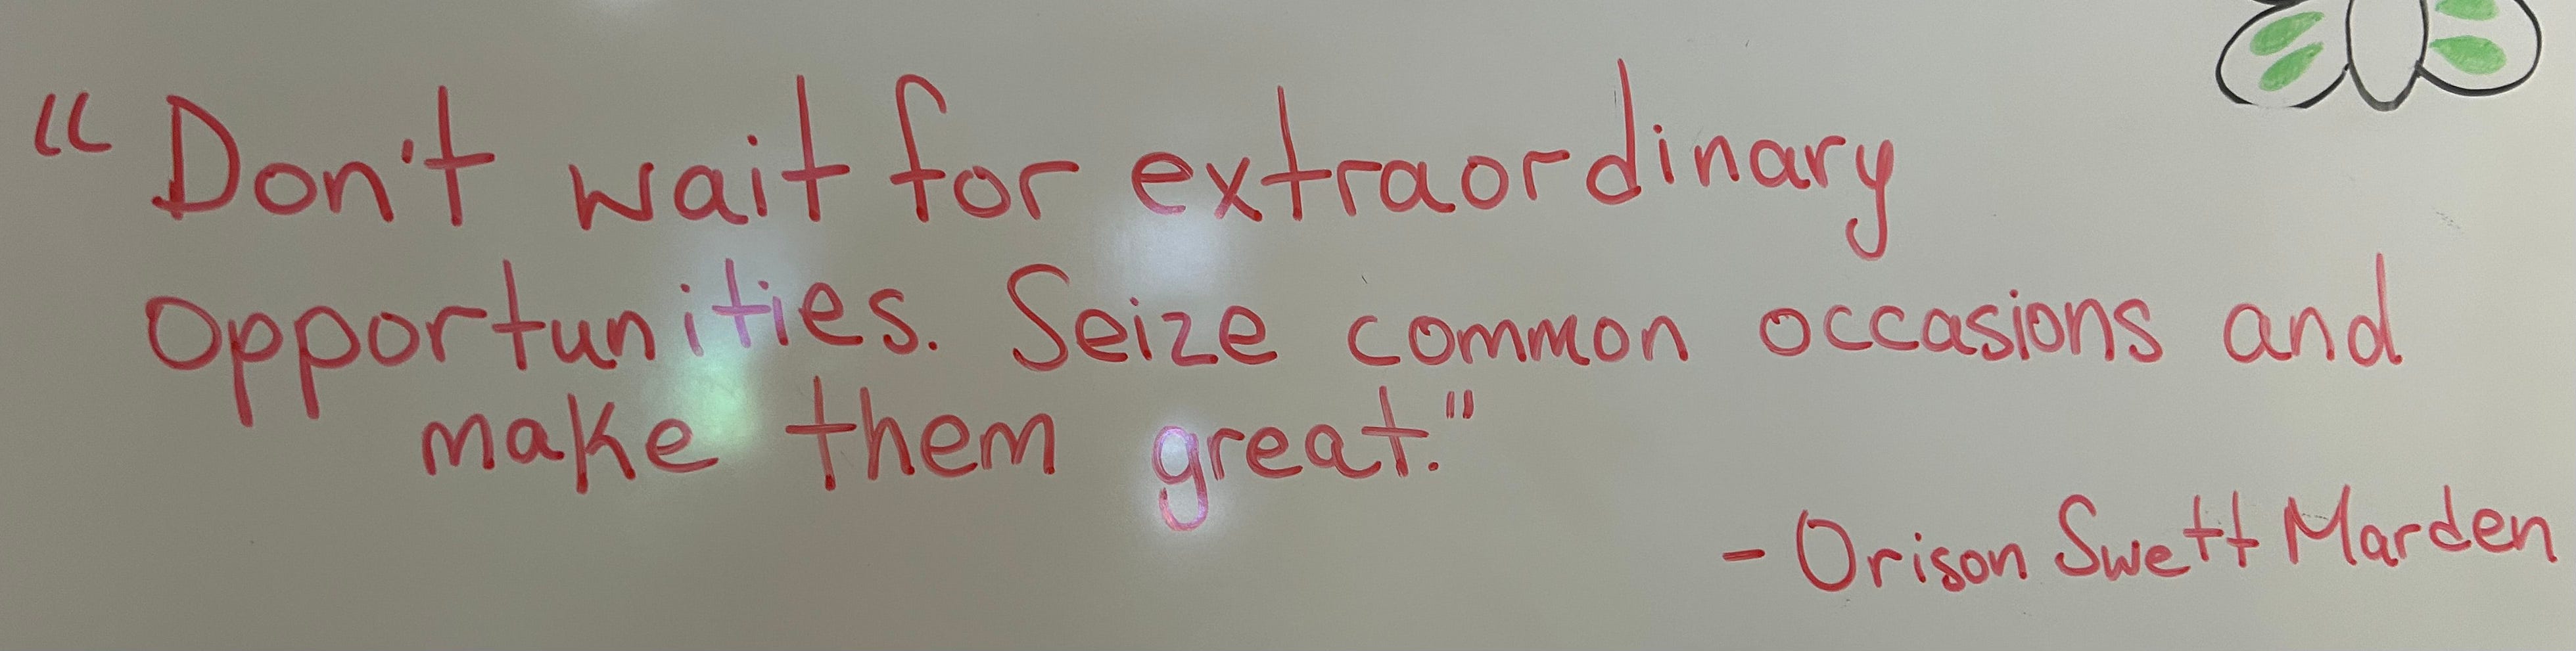 "Don't wait for extraordinary
opportunities. Seize common occasions and
make them great."
- Orison Swett Marden